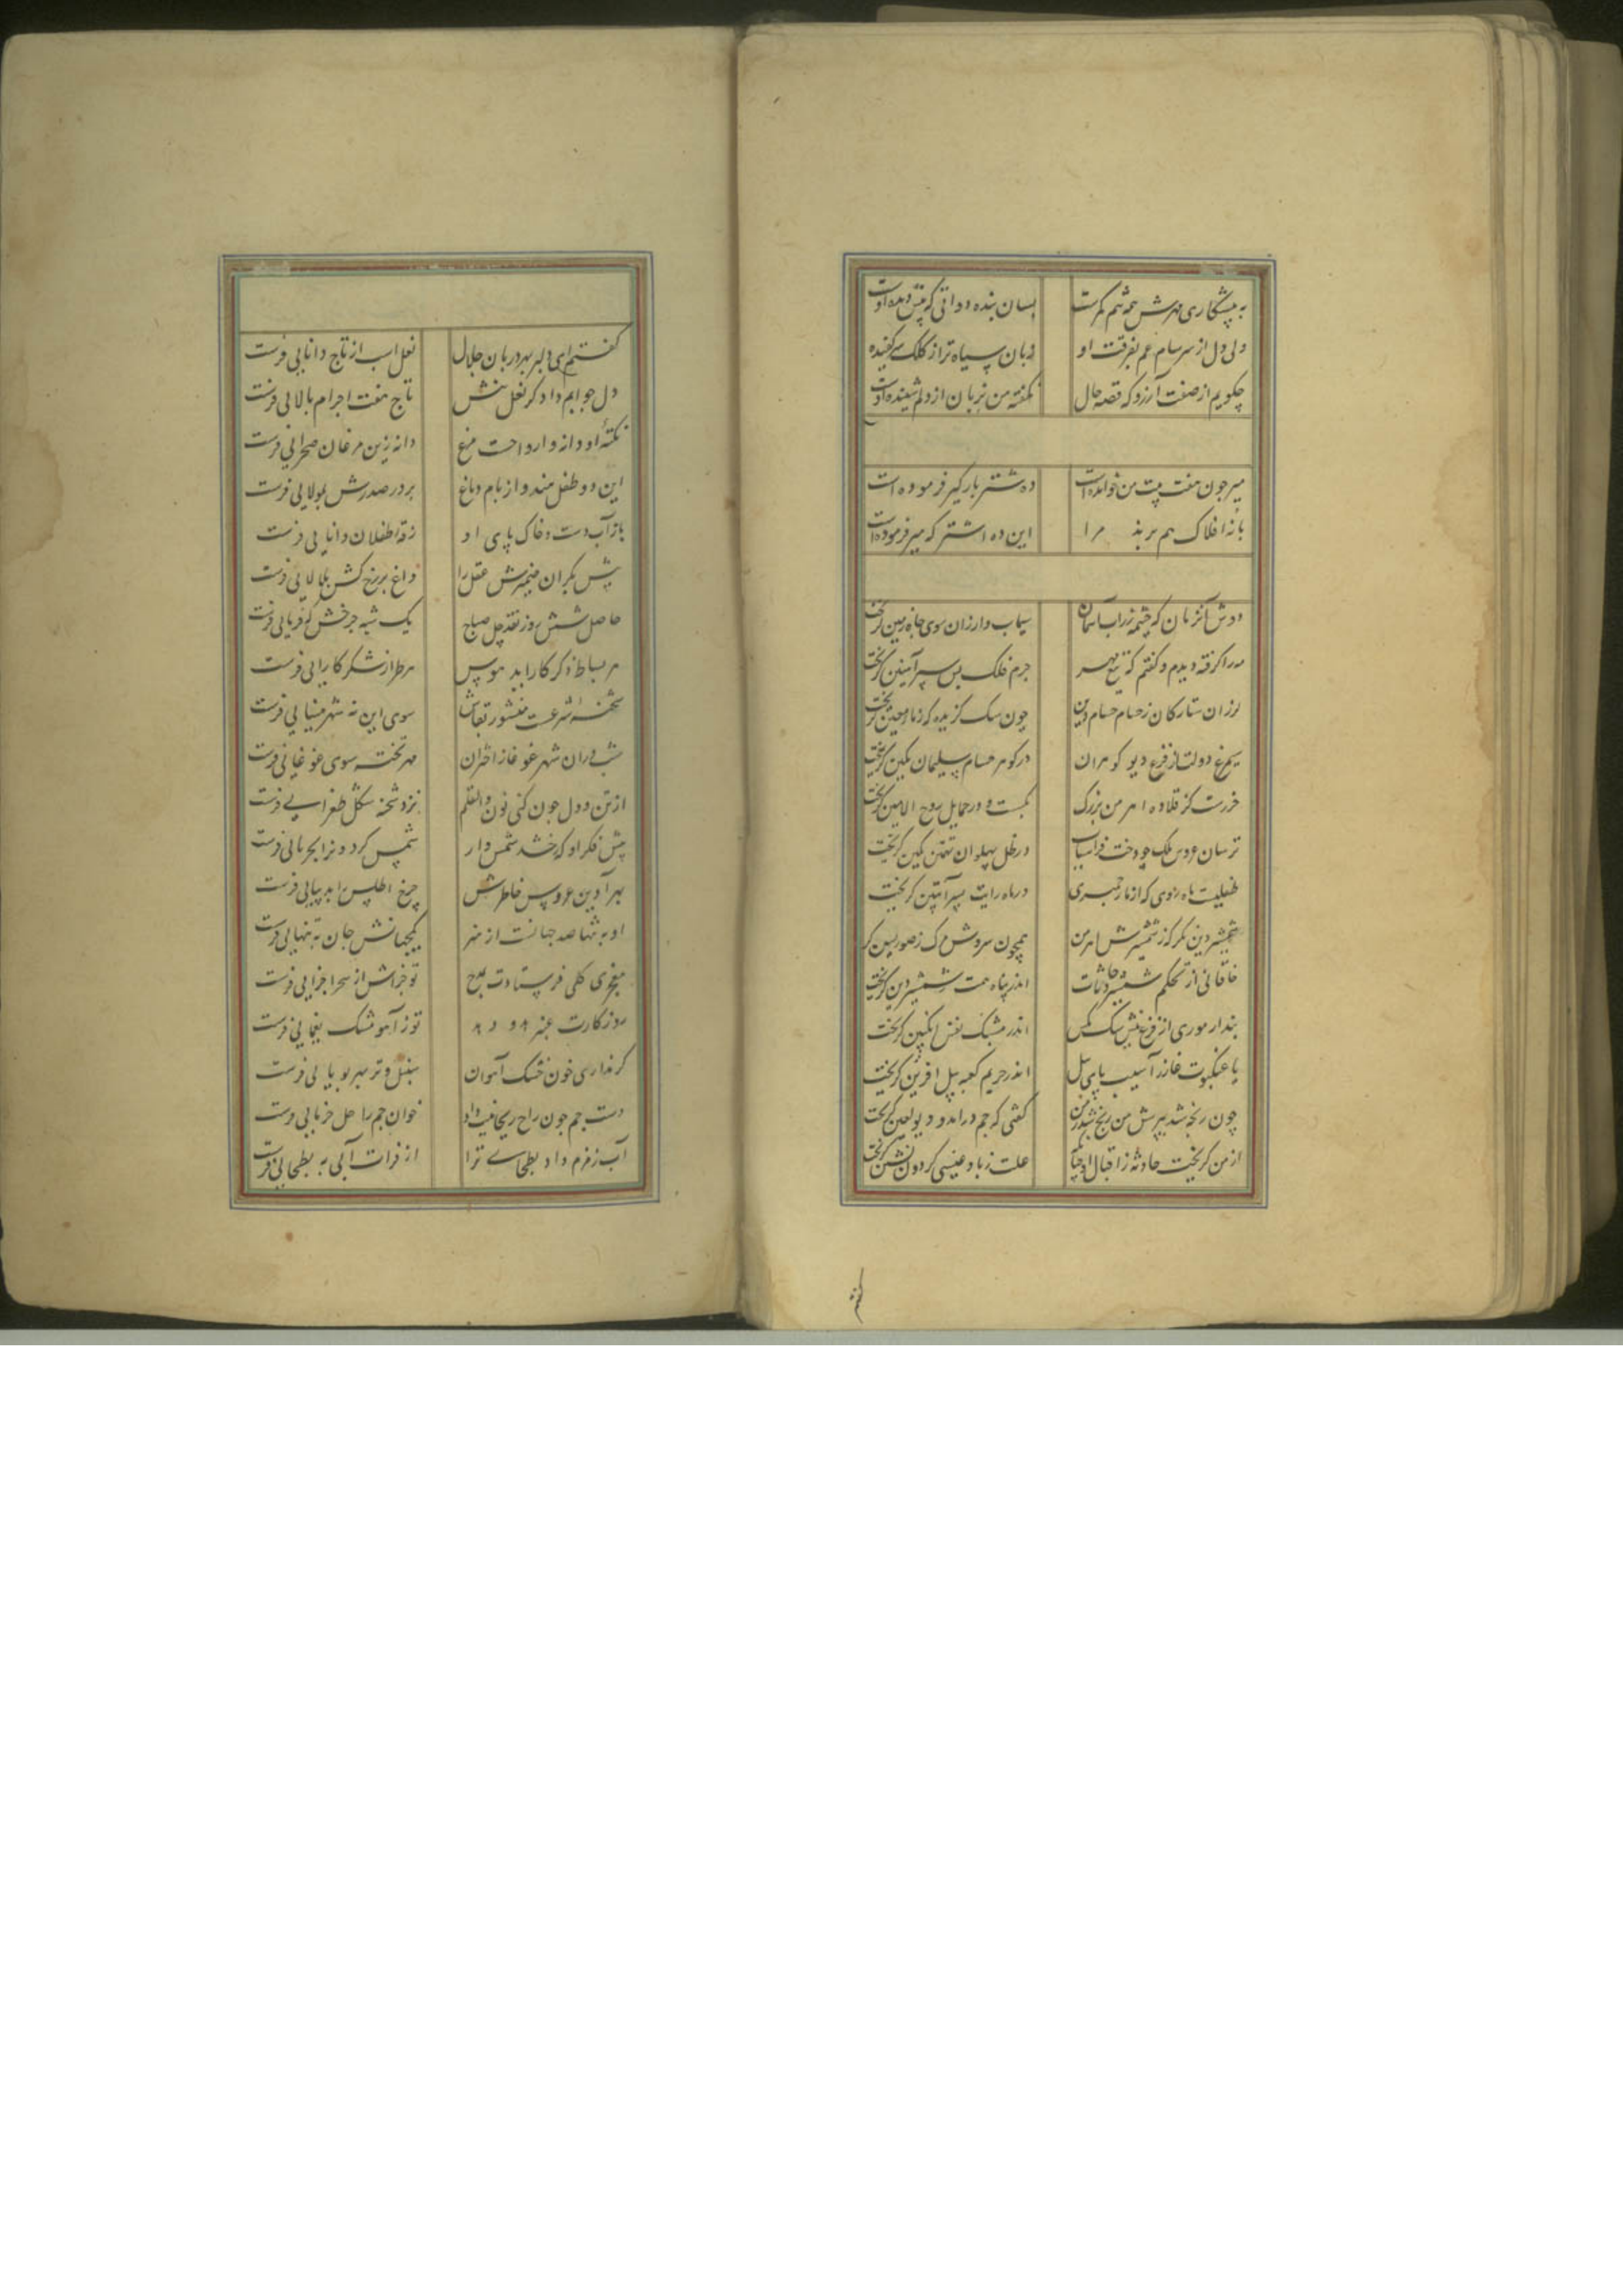 به پیشکاری مهرش همه تنم کمرست بسان بنده دواتی که پیش دیده اوست
ولی دل از سرسام غم بفرقت او زبان سیاه تر از کلک سرکفیده اوست
چکویم از صفت آرزو که قصه حال نکفته من بزبان از دلم شنیده اوست
میر چون هفت بیت من خوانده است ده شتر بارکیر فرموده است
با نه افلاک هم برند مرا این ده اشتر که میر فرموده است
دوش آنزمان که چشمه زراب آسمان سیماب وار زان سوی چاه زمین کریخت
مه را کرفته دیدم و کفتم که تیغ مهر جرم فلک پس سپر آهنین کریخت
لرزان ستارکان ز حسام حسام دین چون سک کزیده که ز ماء معین کریخت
سیمرغ دولت از فزع دیو کوهران در کوهر حسام سلیمان نکین کریخت
حرزست کز قلاده اهرمن بزرک بکسست و در حمایل روح الامین کریخت
ترسان عروس ملک چو دخت فراسیاب در ظل پهلوان تهمتن کمین کریخت
طفلیست ماه روی که از مار حمیری در ماه رایت پسر آبتین کریخت
شمشیر دین نکر که ز شمشیرش اهرمن همچون سروش مرک ز صور پسین کریخت
خاقانی از تحکم شمشیر حادثات اندر پناه همت شمشیر دین کریخت
پندار موری از فزع نیش سک مکس اندر مشبک نفس انکبین کریخت
یا عنکبوت غار ز آسیب پای پیل اندر حریم کعبه پیل آفرین کریخت
چون رنجه شد بپرش من رنج شد ز من کفتی که جم درآمد و دیو لعین کریخت
از من کریخت حادثه ز اقبال او چنانک علت ز باد عیسی کردون نشین کریخت
کفتم
کفتم ای دل بهر دربان جلال نعل اسب از تاج دانایی فرست
دل جوابم داد کز نعل پیش تاج هفت اجرام بالایی فرست
نکته او دانه و ارواحت مرغ دانه زین مرغان صحرایی فرست
این دو طفل هندو از بام دماغ بر در صدرش بمولایی فرست
باز آب دست و خاک پای او زقه اطفلان دانایی فرست
پیش بکران ضمیرش عقل را داغ بر رخ کش بلالایی فرست
حاصل شش روز نقد چل صباح یک شبه خرجش که فرمایی فرست
هر بساطی ذکر کاراید هوس هر طراز شکر کارایی فرست
شحنه شرعست منشور تقاش سوی این نه شهر مینایی فرست
شبروان شهر غوغاز اختران مهر تخته سوی غوغایی فرست
از تن و دل چون کنی نون والقلم نزد شحنه شکل طغرایی فرست
پیش فکر او که رخشد شمس وار شمس کردونرا بحربایی فرست
بهر آذین عروس خاطرش چرخ اطلس را بدیبایی فرست
او به تنها صد جهانست از هنر یکجهانش جان به تنهایی فرست
معجزی کلی فرستادت بمدح تو خراش از سحر اجزایی فرست
روزکارت عنبر داد تو ز آهو مشک یغمایی فرست
کر نداری خون خشک آهوان سنبل و تر بهر بویایی فرست
دست جم چون راح ریحانیت داد خوان جم را خل خرمایی فرست
آب زمزم داد بطحایی ترا از فرات آبی به بطحایی فرست